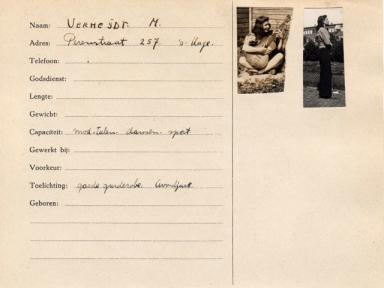 Naam: VERMESDT. M.
Adres: Perenstraat 257 's-Hage.
Telefoon:
Godsdienst:
Lengte:
Gewicht:
Capaciteit: mod. talen dansen sport
Gewerkt bij:
Voorkeur:
Toelichting: goede garderobe. Avondjurk.
Geboren: